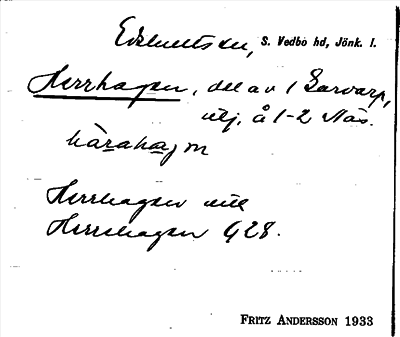 Edshults sn, S. Vedbo hd, Jönk. l.
Herrhagen, del av 1 Sarvarp,
utj. å 1-2 Näs.
hàrahagɱ
Herrhagen till
Herrehagen G28.
FRITZ ANDERSSON 1933